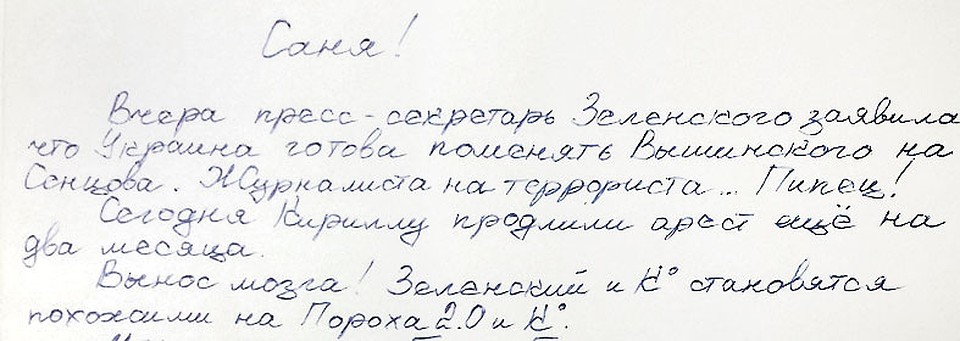 Саня!
Вчера пресс-секретарь Зеленского заявила
что Украина готова поменять Вышинского на
Сенцова. Журналиста на террориста... Пипец!
Сегодня Кириллу продлили арест ещё на
два месяца.
Вынос мозга! Зеленский и К° становятся
похожими на Пороха 2.0 и К°.